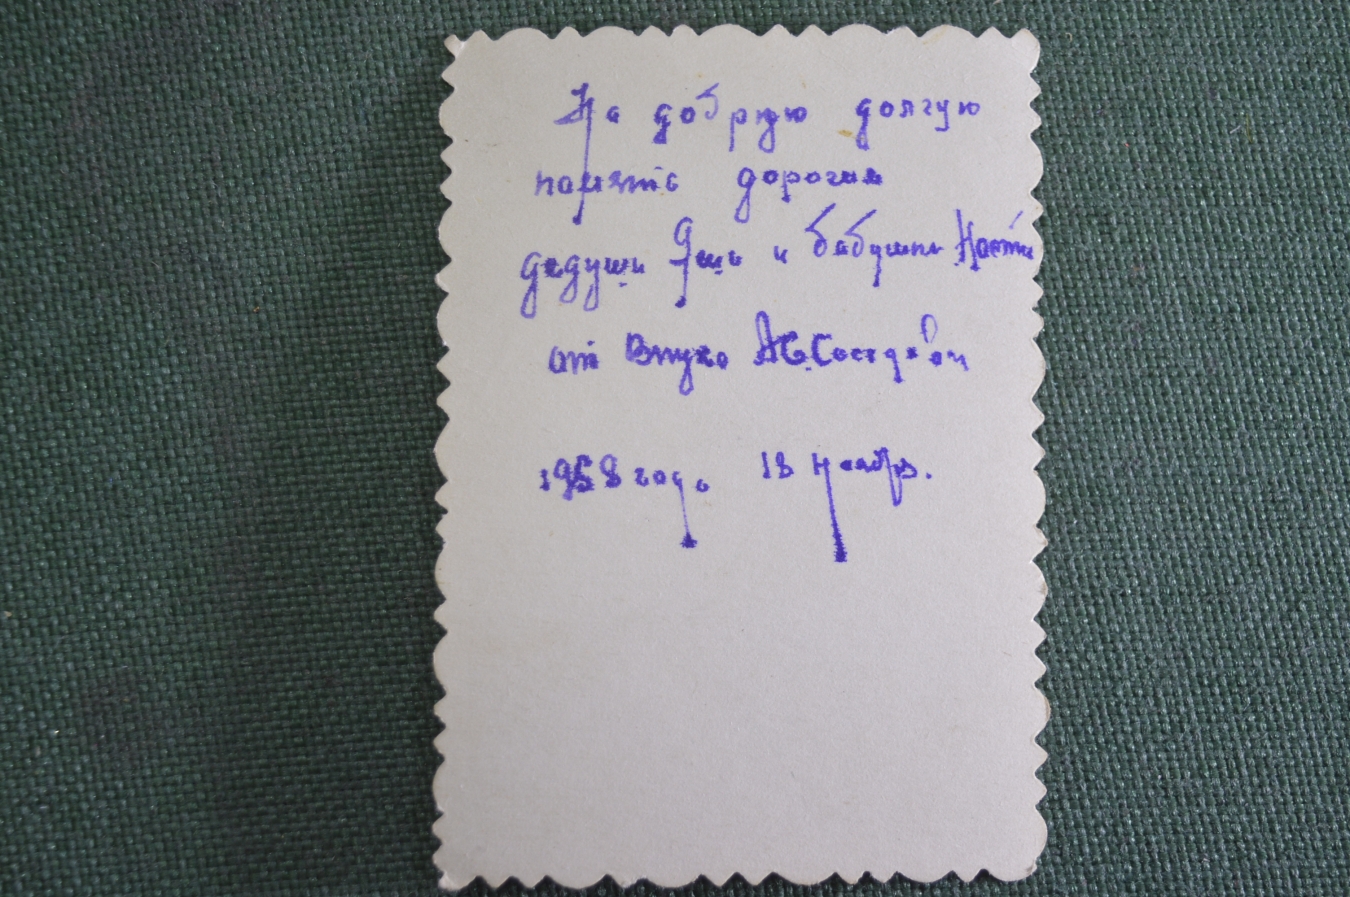 На добрую долгую
память дорогим
дедуши и бабушки Насти
от Внука
1958 года 13 ноябр.